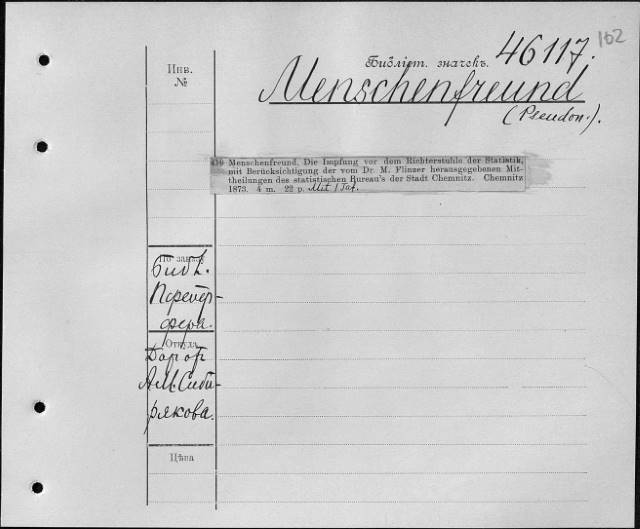 162
Библіот. значекъ. 46117.
Инв.
№
Menschenfreund
(Pseudon.).
Menschenfreund. Die Impfung vor dem Richterstuhle der Statistik,
mit Berücksichtigung der vom Dr. M. Flinzer herausgegebenen Mit-
theilungen des statistischen Bureau's der Stadt Chemnitz. Chemnitz
1873. 4 m. 22 p. Mit 1 Taf.
По заказу
Библ.
Пфейф-
фера.
Откуда
Дар от
А.М. Сиби-
рякова.
Цѣна